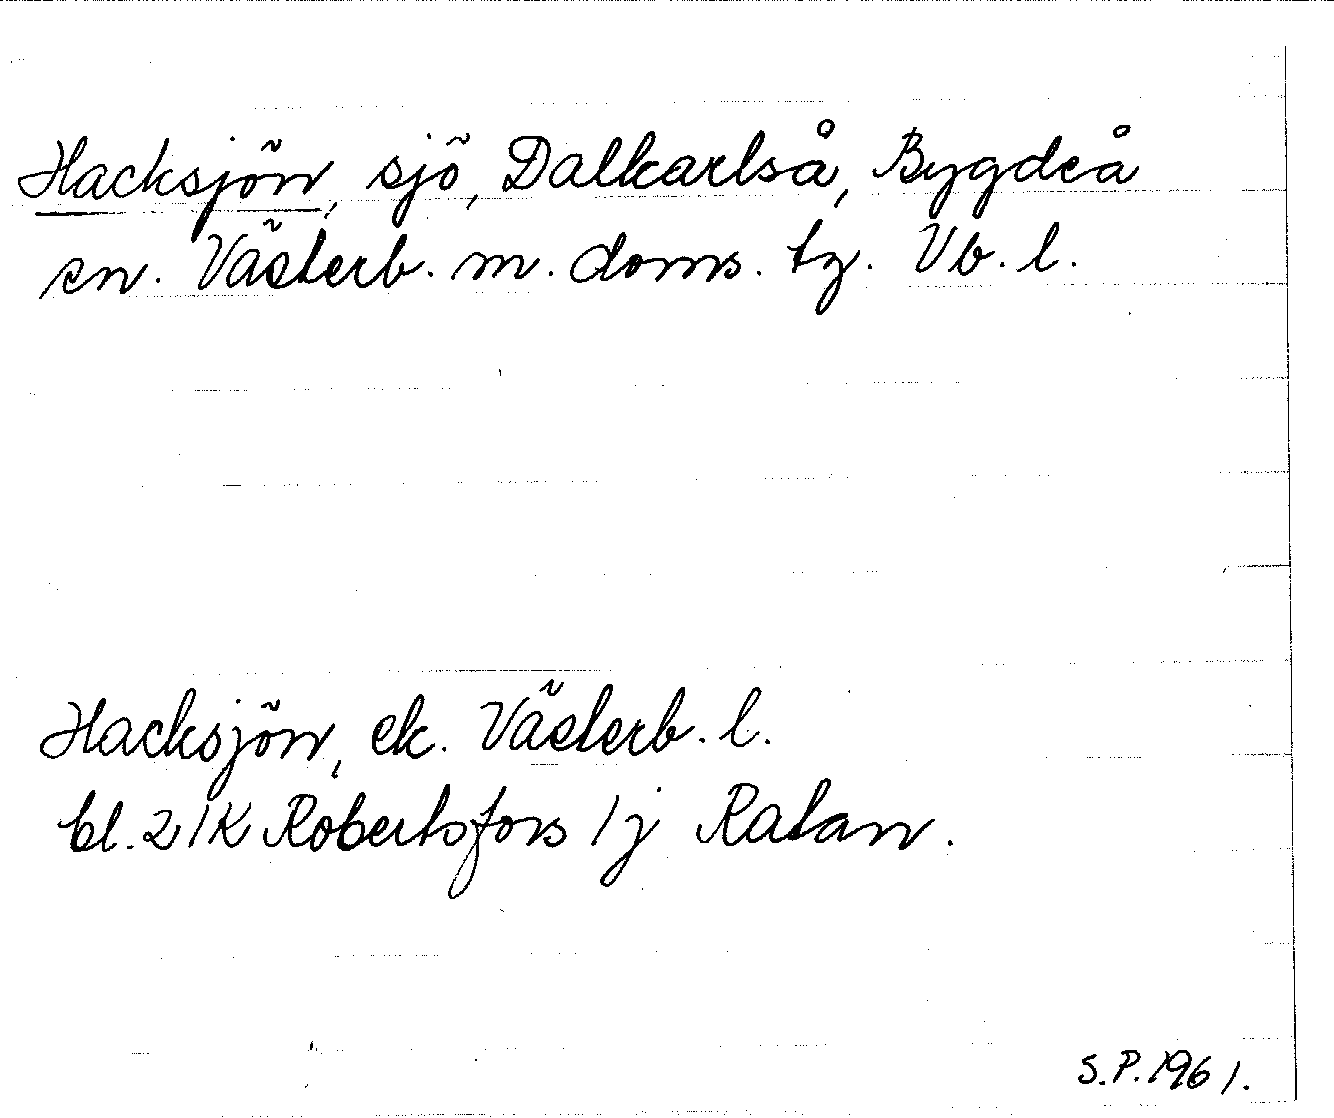 Hacksjön, sjö, Dalkarlså, Bygdeå
sn. Västerb. m. doms. tg. Vb. l.
Hacksjön, ek. Västerb. l.
bl. 21K Robertsfors /j Ratan.
S.P. 1961.